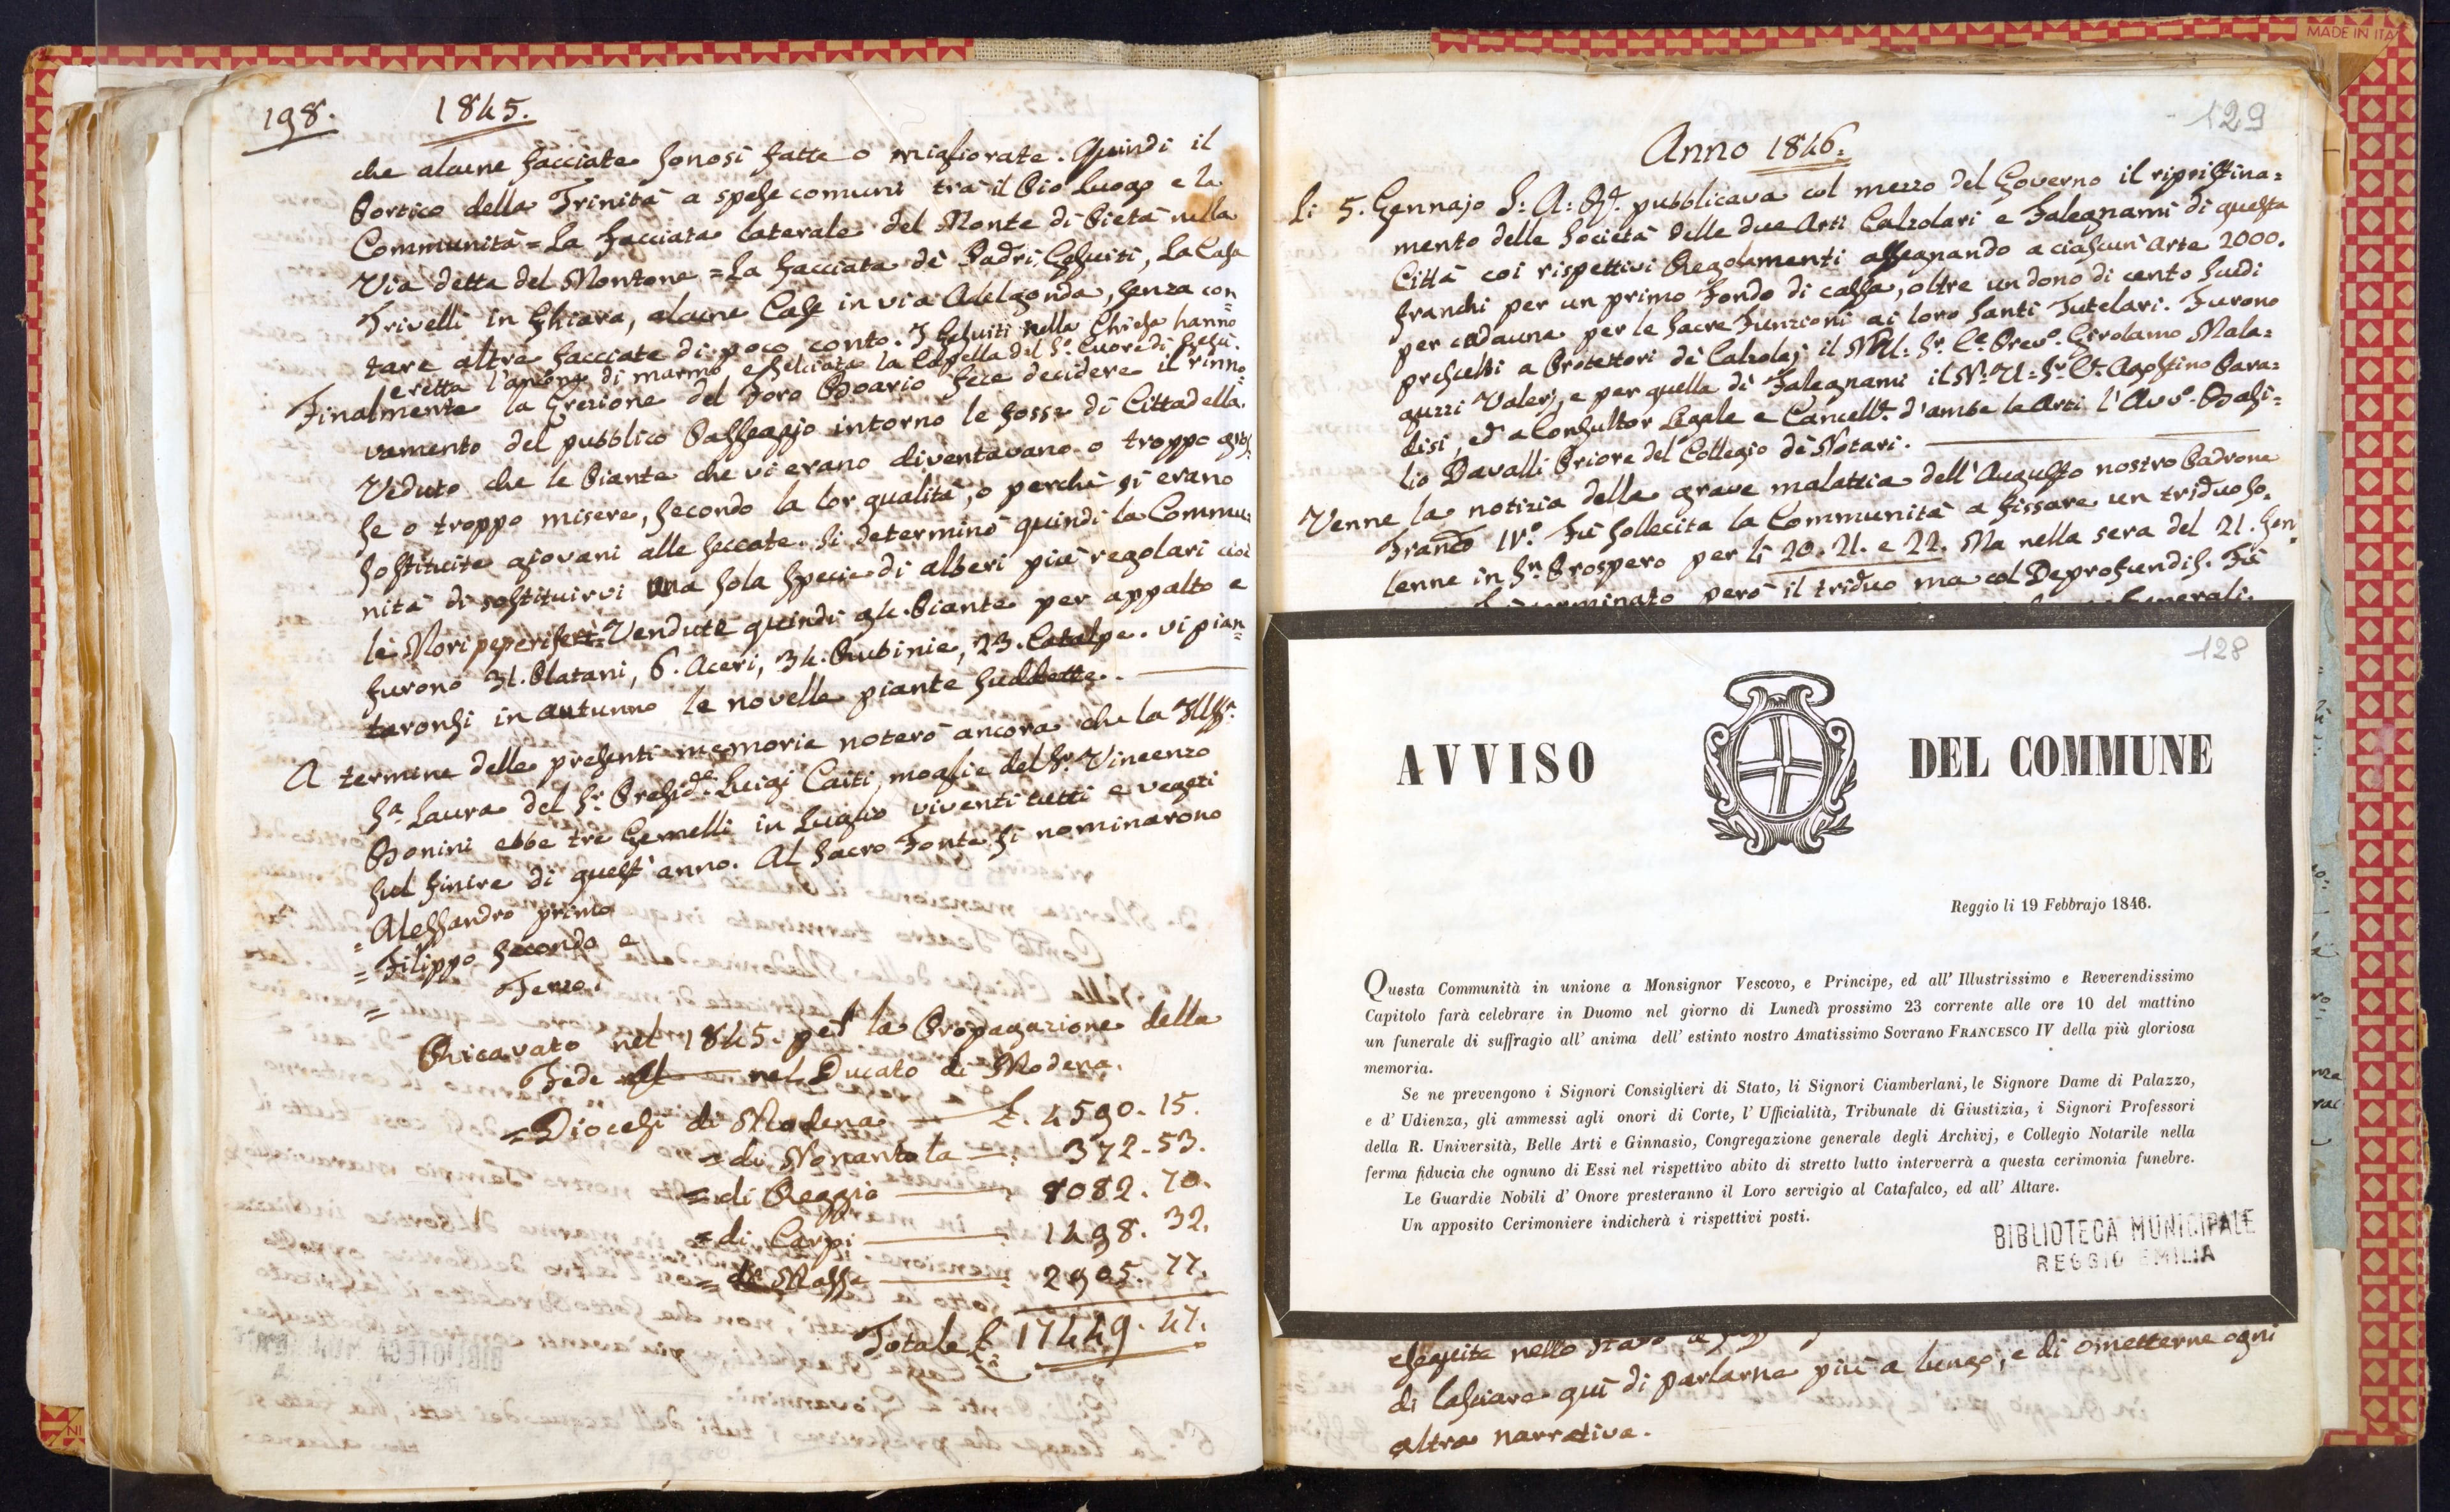 198. 1845.
che alcune facciate sonosi fatte o migliorate. Quindi il
Portico della Trinità a spese comuni trà il Pio Luogo e la
Communità = La facciata laterale del Monte di Pietà nella
Via detta del Montone = La facciata dè Padri Gesuiti, La Casa
Trivelli in Ghiara, alcune Case in via Adelgonda, senza con=
tare altre facciate di poco conto. I Gesuiti nella Chiesa hanno
eretta l'ancona di marmo, e selciata la Capella del S. Cuore di Gesù.
Finalmente la Erezione del Foro Boario fece decidere il rinno=
vamento del pubblico Passeggio intorno le fosse di Cittadella.
Veduto che le Piante che vi erano diventavano o troppo gros=
se o troppo misere, secondo la lor qualità, o perchè si erano
sostituite giovani alle seccate. Si determinò quindi la Commu=
nità di sostituirvi una sola specie di alberi più regolari cioè
lè Mori peperiferi. Vendute quindi 94. Piante per appalto e
furono 31. Platani, 6. Aceri, 34. Rubinie, 23. Catalpe. vi pian=
taronsi in autunno le novelle piante suddette.
A termine delle presenti memorie noterò ancora che la Illsa.
Sa. Laura del Sr. Presid.e Luigi Caiti, moglie del Sr. Vincenzo
Bonini ebbe trè Gemelli in Luglio viventi tutti e vegeti
sul finire di quest'anno. Al Sacro Fonte si nominarono
= Alessandro primo
= Filippo secondo e
= Terzo.
Ricavato nel 1845. per la Propagazione della
Fede nel Ducato di Modena.
= Diocesi di Modena £. 4590. 15.
= di Nonantola 372. 53.
= di Reggio 8082. 70.
= di Carpi 1498. 32.
= di Massa 2905. 77.
Totale £. 17449. 47.
129
Anno 1846.
Li 5. Gennajo S: A: R. pubblicava col mezzo del Governo il ripristina=
mento delle Società delle due Arti Calzolari e Falegnami di questa
Città coi rispettivi Regolamenti assegnando a ciascun'Arte 2000.
franchi per un primo Fondo di cassa, oltre un dono di cento scudi
per cadauna per le sacre Funzioni ai loro Santi Tutelari. Furono
prescelti a Protettori dè Calzolaj il Sr. Ce. Girolamo Mala=
guzzi Valerj, e per quella di Falegnami il N. U. Sr. Ce. Agostino Para=
disi, ed a Consultor Legale e Cancell.e d'ambe le Arti l'Avv.o Basi=
lio Davalli Priore del Collegio dè Notari.
Venne la notizia della grave malattia dell'Augusto nostro Padrone
Franco IVo. Fù sollecita la Communità a fissare un triduo so=
lenne in Sn. Prospero per li 20. 21. e 22. Ma nella sera del 21.
terminato però il triduo ma col Deprofundis. Fù
128
AVVISO DEL COMMUNE
Reggio li 19 Febbrajo 1846.
Questa Communità in unione a Monsignor Vescovo, e Principe, ed all' Illustrissimo e Reverendissimo
Capitolo farà celebrare in Duomo nel giorno di Lunedì prossimo 23 corrente alle ore 10 del mattino
un funerale di suffragio all' anima dell' estinto nostro Amatissimo Sovrano FRANCESCO IV della più gloriosa
memoria.
Se ne prevengono i Signori Consiglieri di Stato, li Signori Ciamberlani, le Signore Dame di Palazzo,
e d' Udienza, gli ammessi agli onori di Corte, l' Ufficialità, Tribunale di Giustizia, i Signori Professori
della R. Università, Belle Arti e Ginnasio, Congregazione generale degli Archivj, e Collegio Notarile nella
ferma fiducia che ognuno di Essi nel rispettivo abito di stretto lutto interverrà a questa cerimonia funebre.
Le Guardie Nobili d' Onore presteranno il Loro servigio al Catafalco, ed all' Altare.
Un apposito Cerimoniere indicherà i rispettivi posti.
BIBLIOTECA MUNICIPALE
REGGIO EMILIA
eseguite nello Stato
di lasciare quì di parlarne più a lungo, e di ometterne ogni
altra narrativa.
MADE IN ITA